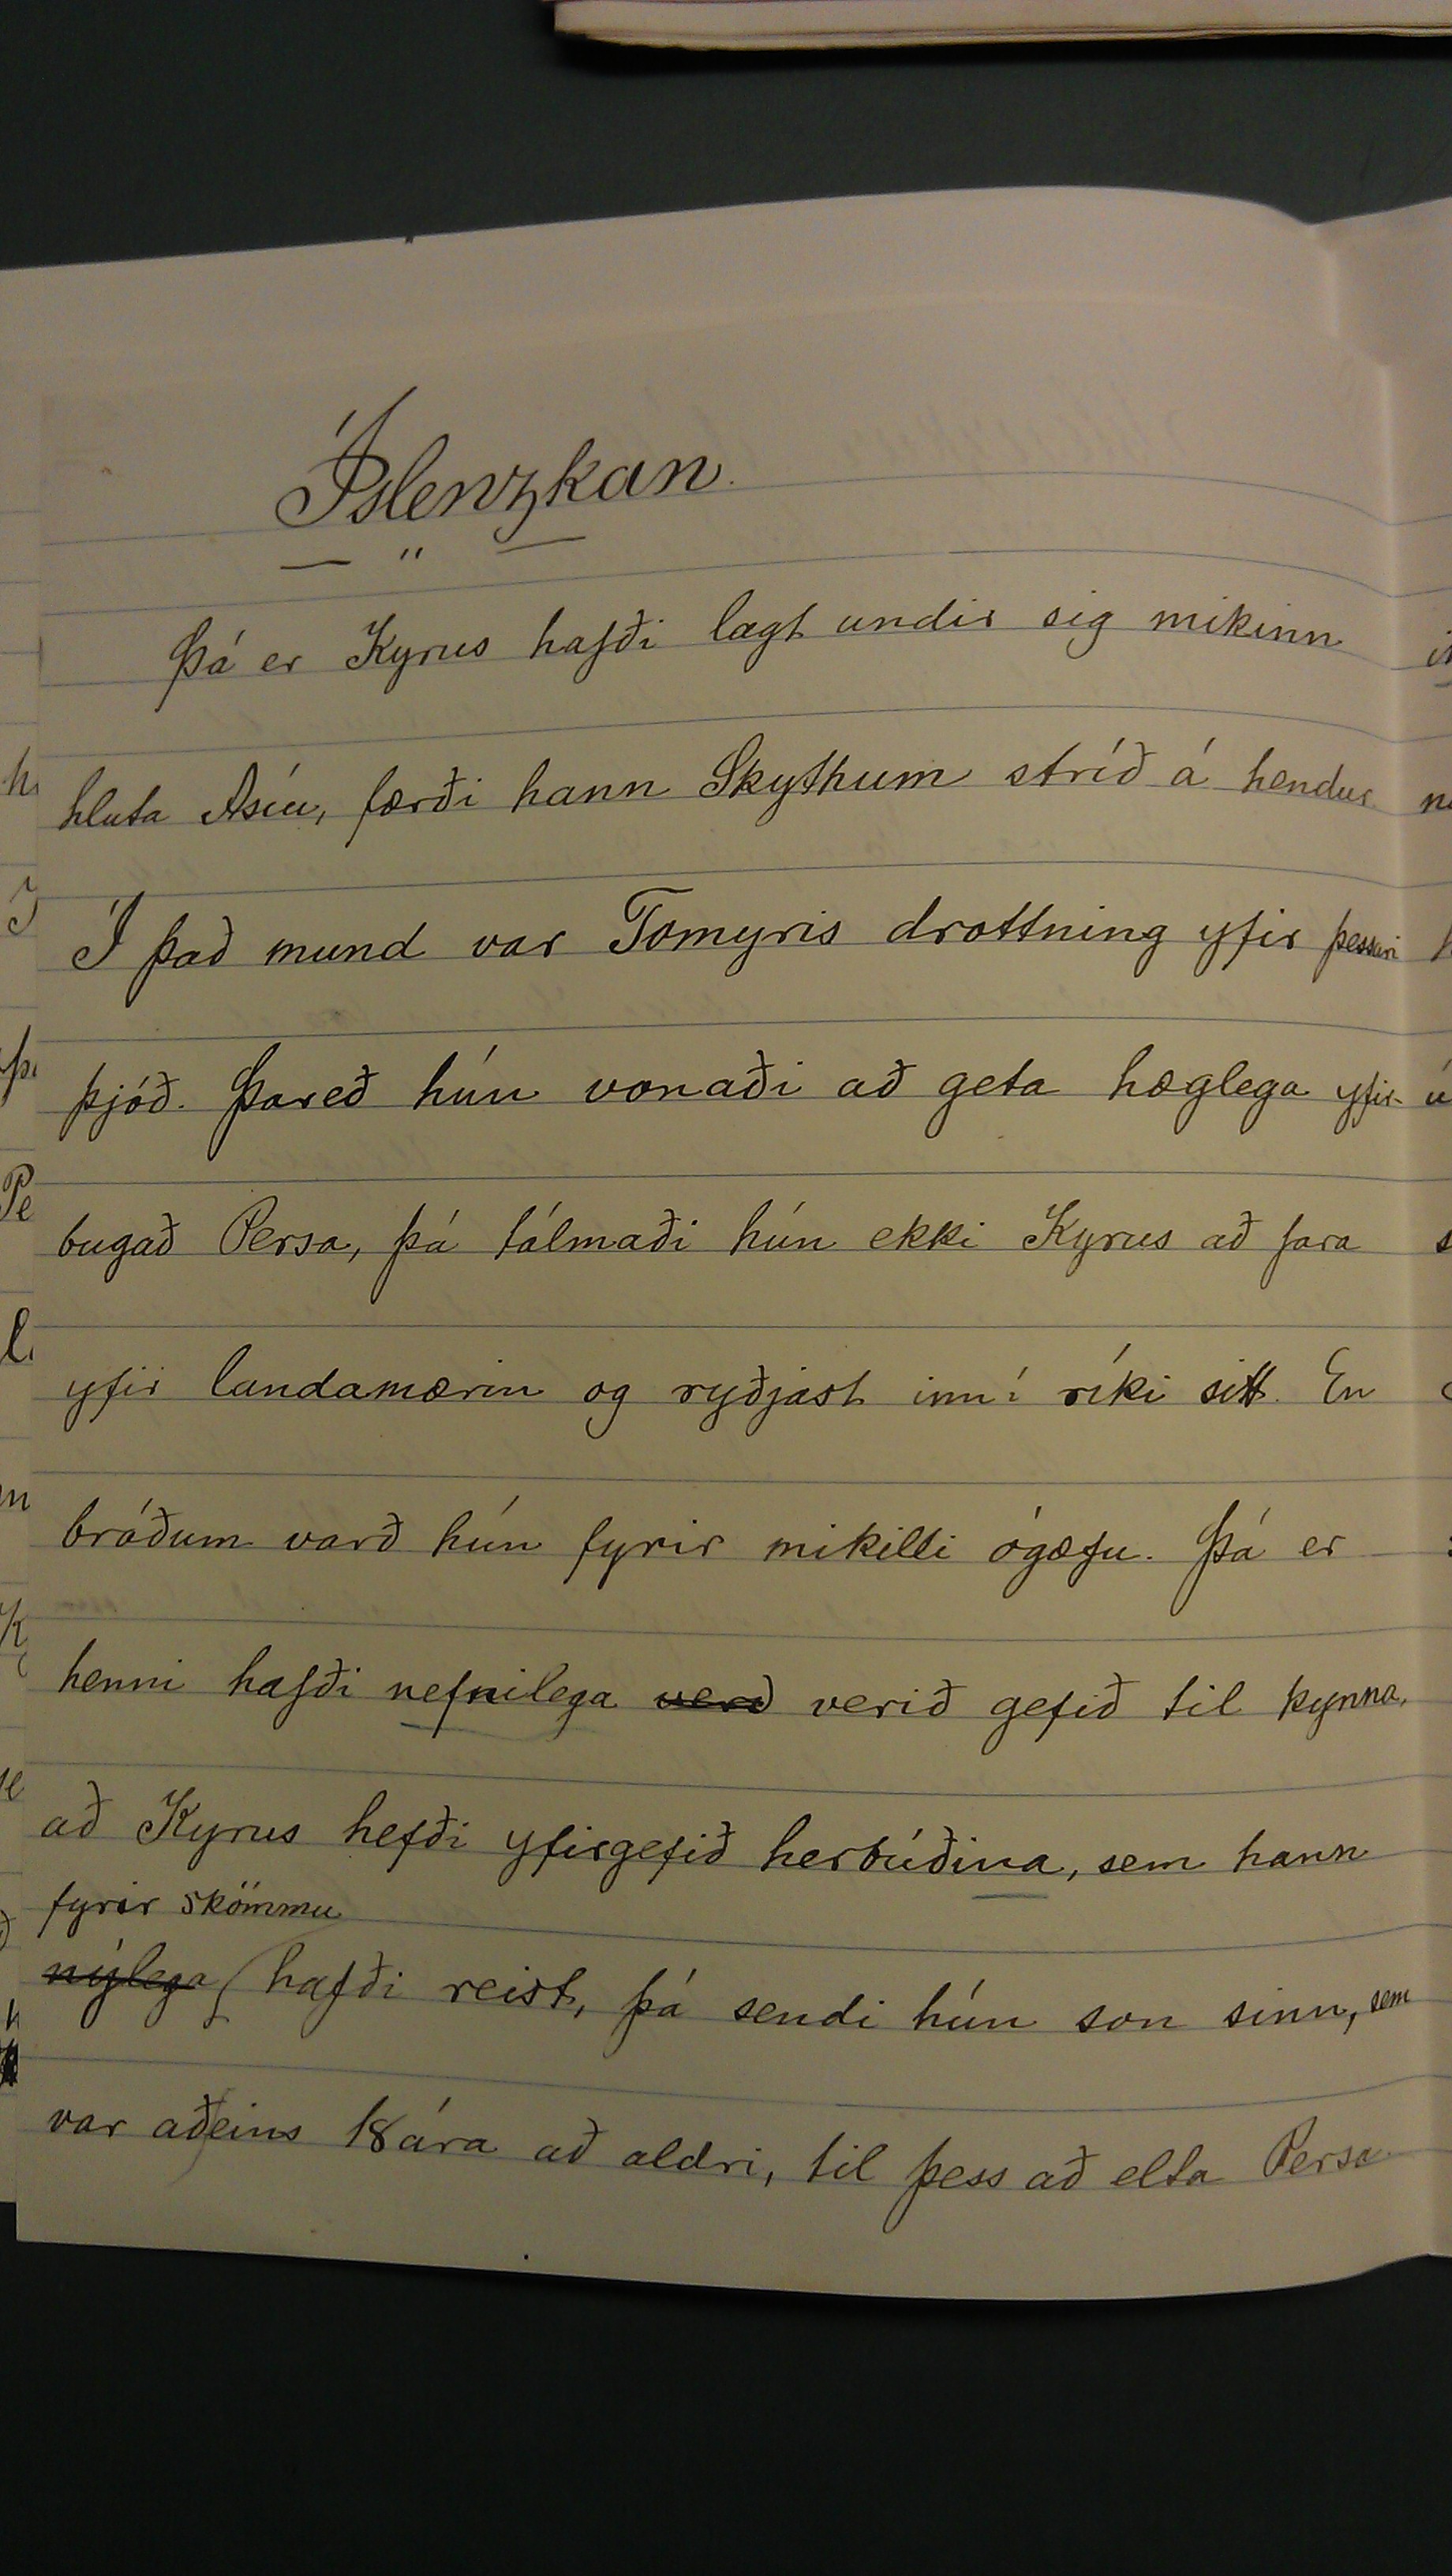 Íslenzkan.
Þá er Kyrus hafði lagt undir sig mikinn
hluta Asíu, færði hann Skythum stríð á hendur
Í það mund var Tomyris drottning yfir þessari
þjóð. Þareð hún vonaði að geta hæglega yfir-
bugað Persa, þá tálmaði hún ekki Kyrus að fara
yfir landamærin og ryðjast inn í ríki sitt. En
bráðum varð hún fyrir mikilli ógæfu. Þá er
henni hafði nefnilega verd verið gefið til kynna,
að Kyrus hefði yfirgefið herbúðina, sem hann
fyrir skömmu
nýlega hafði reist, þá sendi hún son sinn, sem
var aðeins 18 ára að aldri, til þess að elta Persa